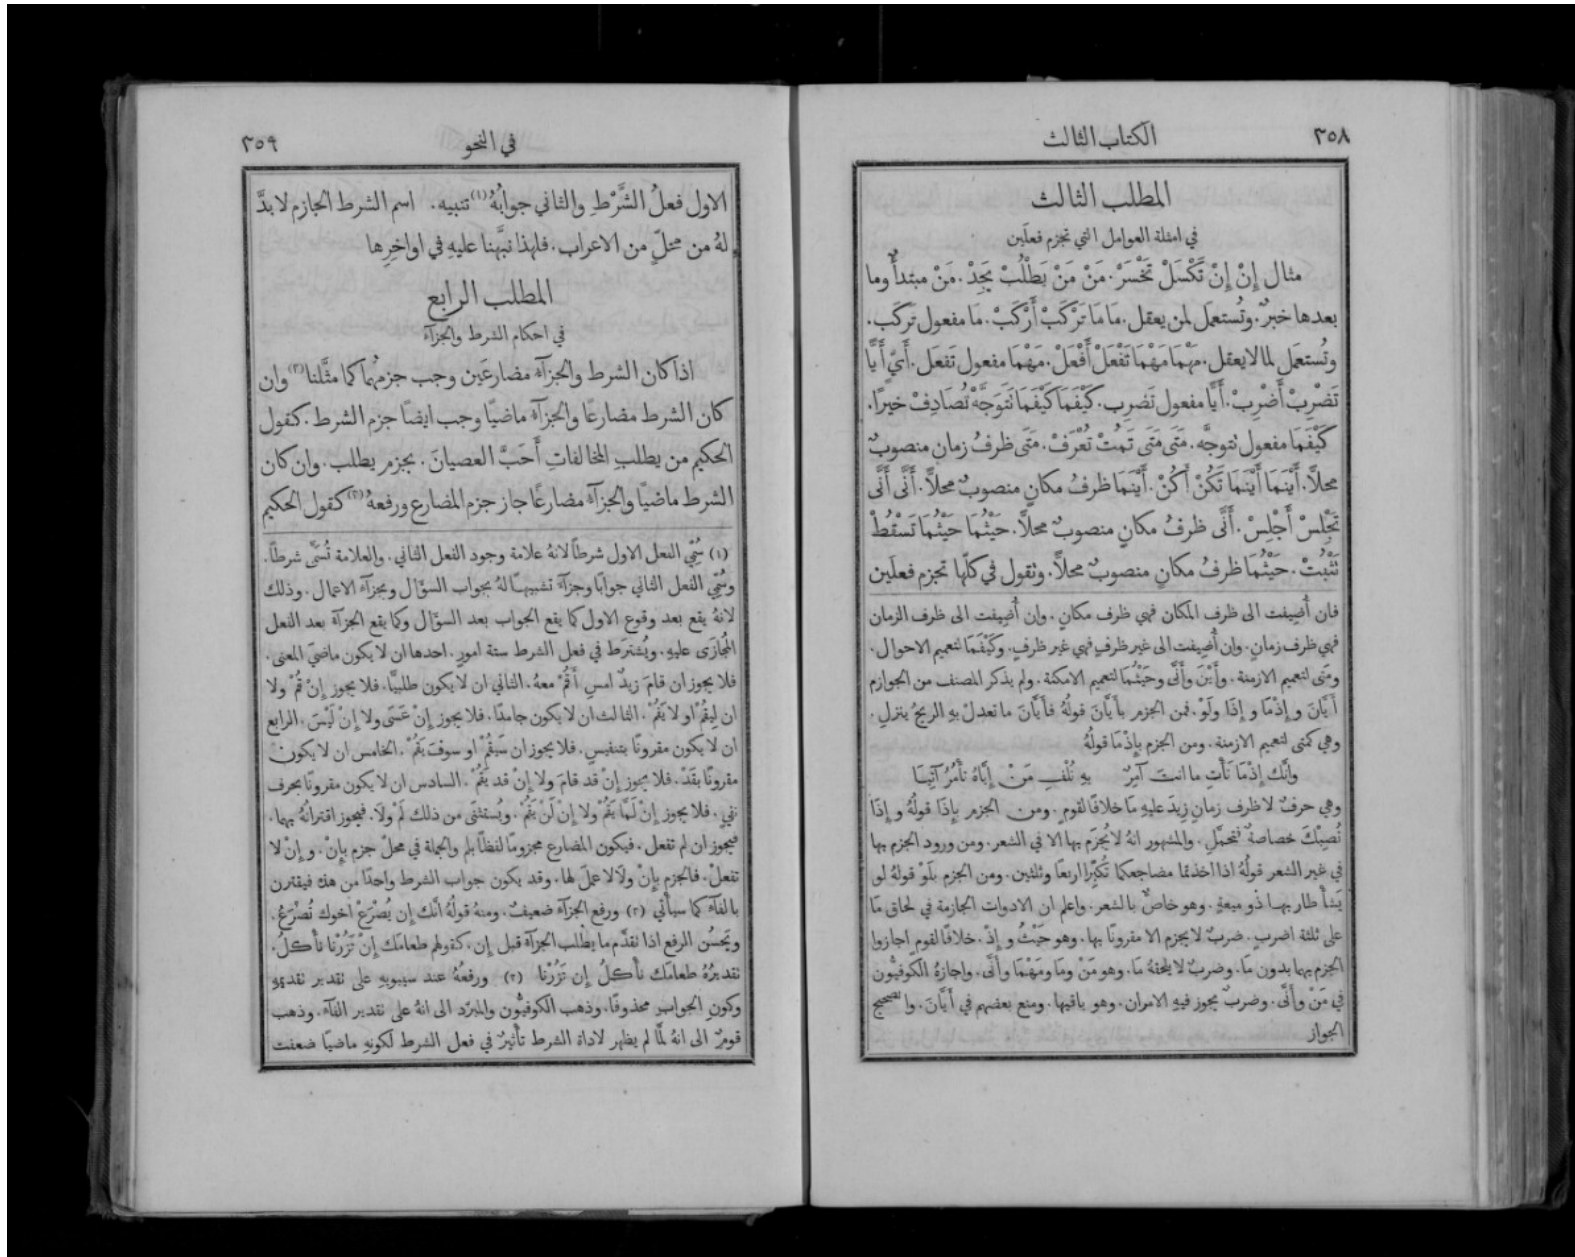 ٣٥٨
الكتاب الثالث
المطلب الثالث
في امثلة العوامل التي تجزم فعلَين
مثال إِنْ إِنْ تَكْسَلْ تَخْسَرْ. مَنْ مَنْ يَطْلُبْ يَجِدْ. مَنْ مبتدأٌ وما
بعدها خبرٌ. وتُستعمَل لمن يعقل. مَا مَا تَرْكَبْ أَرْكَبْ. مَا مفعول تَركَب.
وتُستعمَل لما لا يعقل. مَهْمَا مَهْمَا تَفْعَلْ أَفْعَلْ. مَهْمَا مفعول تَفعَل. أَيٌّ أَيًّا
تَضْرِبْ أَضْرِبْ. أَيًّا مفعول تَضرِب. كَيْفَمَا كَيْفَمَا تَتَوجَّهْ تُصَادِفْ خيرًا.
كَيْفَمَا مفعول تتوجَّه. مَتَى مَتَى تَمُتْ تُعْرَفْ. مَتَى ظرفُ زمانٍ منصوبٌ
محلاًّ. أَيْنَمَا أَيْنَمَا تَكُنْ أَكُنْ. أَيْنَمَا ظرفُ مكانٍ منصوبٌ محلاًّ. أَنَّى أَنَّى
تَجْلِسْ أَجْلِسْ. أَنَّى ظرفُ مكانٍ منصوبٌ محلاًّ. حَيْثُمَا حَيْثُمَا تَسْقُطْ
تَثْبُتْ. حَيْثُمَا ظرفُ مكانٍ منصوبٌ محلاًّ. وتقول في كلّها تجزم فعلَين
فان أُضِيفت الى ظرف المكان فهي ظرف مكانٍ. وان أُضِيفت الى ظرف الزمان
فهي ظرف زمانٍ. وان أُضِيفت الى غير ظرفٍ فهي غير ظرفٍ. وكَيْفَمَا لتعميم الاحوال.
ومَتَى لتعميم الازمنة. وأَيْنَ وأَنَّى وحَيْثُمَا لتعميم الامكنة. ولم يذكر المصنف من الجوازم
أَيَّانَ وإِذْمَا وإِذَا ولَوْ. فمن الجزم بأَيَّانَ قولهُ فأَيَّانَ ما تعدلْ بهِ الريحُ ينزلِ.
وهي كمتى لتعميم الازمنة. ومن الجزم بإِذْمَا قولهُ
وانَّك إِذْمَا تَأْتِ ما انت آمِرٌ بهِ تُلْفِ مَنْ إِيَّاهُ تأْمُرُ آتِيَا
وهي حرفٌ لا ظرف زمانٍ زِيدَ عليهِ مَا خلافًا لقومٍ. ومن الجزم بإِذَا قولهُ وإِذَا
تُصِبْكَ خصاصةٌ فتحمَّلِ. والمشهور انهُ لا يُجزَم بها الا في الشعر. ومن ورود الجزم بها
في غير الشعر قولهُ اذا اخذتما مضاجعكما تُكَبِّرا اربعًا وثلثين. ومن الجزم بلَوْ قولهُ لو
يَشَأْ طار بها ذو ميعةٍ. وهو خاصٌّ بالشعر. واعلم ان الادوات الجازمة في لحاق مَا
على ثلثة اضربٍ. ضربٌ لا يجزم الا مقرونًا بها. وهو حَيْثُ وإِذْ. خلافًا لقومٍ اجازوا
الجزم بهما بدون مَا. وضربٌ لا يلحقهُ مَا. وهو مَنْ ومَا ومَهْمَا وأَنَّى. واجازهُ الكوفيُّون
في مَنْ وأَنَّى. وضربٌ يجوز فيهِ الامران. وهو باقيها. ومنع بعضهم في أَيَّانَ. والصحيح
الجواز
في النحو
٣٥٩
الاول فعلُ الشَّرْطِ والثاني جوابُهُ (١) تنبيه. اسم الشرط الجازم لا بدَّ
لهُ من محلٍّ من الاعراب. فلهذا نبَّهنا عليهِ في اواخِرِها
المطلب الرابع
في احكام الشرط والجزآءَ
اذا كان الشرط والجزآءَ مضارعَين وجب جزمهُما كما مثَّلنا (٢) وان
كان الشرط مضارعًا والجزآءَ ماضيًا وجب ايضًا جزم الشرط. كقول
الحكيم من يطلبِ المخالفاتِ أَحَبَّ العصيانَ. بجزم يطلب. وان كان
الشرط ماضيًا والجزآءَ مضارعًا جاز جزم المضارع ورفعهُ (٣) كقول الحكيم
(١) سُمِّي الفعل الاول شرطًا لانهُ علامة وجود الفعل الثاني. والعلامة تُسمَّى شرطًا.
وسُمِّي الفعل الثاني جوابًا وجزآءً تشبيهًا لهُ بجواب السؤَال وبجزآء الاعمال. وذلك
لانهُ يقع بعد وقوع الاول كما يقع الجواب بعد السؤَال وكما يقع الجزآء بعد الفعل
المُجازَى عليهِ. ويُشترَط في فعل الشرط ستة امورٍ. احدها ان لا يكون ماضيَ المعنى.
فلا يجوز ان قامَ زيدٌ امسِ أَقُمْ معهُ. الثاني ان لا يكون طلبيًّا. فلا يجوز إِنْ قُمْ ولا
ان لِيقُمْ او لا يَقُمْ. الثالث ان لا يكون جامدًا. فلا يجوز إِنْ عَسَى ولا إِنْ لَيْسَ. الرابع
ان لا يكون مقرونًا بتنفيسٍ. فلا يجوز ان سَيقُمْ او سوفَ يَقُمْ. الخامس ان لا يكون
مقرونًا بقَدْ. فلا يجوز إِنْ قد قامَ ولا إِنْ قد يَقُمْ. السادس ان لا يكون مقرونًا بحرف
نفيٍ. فلا يجوز إِنْ لَمَّا يَقُمْ ولا إِنْ لَنْ يَقُمْ. ويُستثنَى من ذلك لَمْ ولَا. فيجوز اقترانُهُ بهما.
فيجوز ان لم تفعل. فيكون المضارع مجزومًا لفظًا بلم والجملة في محلّ جزمٍ بإِنْ. وإِنْ لا
تفعلْ. فالجزم بإِنْ ولَا لا عملَ لها. وقد يكون جواب الشرط واحدًا من هذه فيقترن
بالفآء كما سيأْتي (٢) ورفع الجزآء ضعيفٌ. ومنهُ قولهُ انَّك إِن يُصْرَعْ اخوك تُصْرَعُ.
ويَحسُن الرفع اذا تقدَّم ما يطلب الجزآءَ قبل إِن. كقولهم طعامَك إِنْ تَزُرْنا نأْكلُ.
تقديرُهُ طعامَك نأْكلُ إِن تَزُرْنا (٣) ورفعُهُ عند سيبويهِ على تقدير تقديمهِ
وكونِ الجواب محذوفًا. وذهب الكوفيُّون والمبرّد الى انهُ على تقدير الفآء. وذهب
قومٌ الى انهُ لمَّا لم يظهر لاداة الشرط تأْثيرٌ في فعل الشرط لكونهِ ماضيًا ضعفت